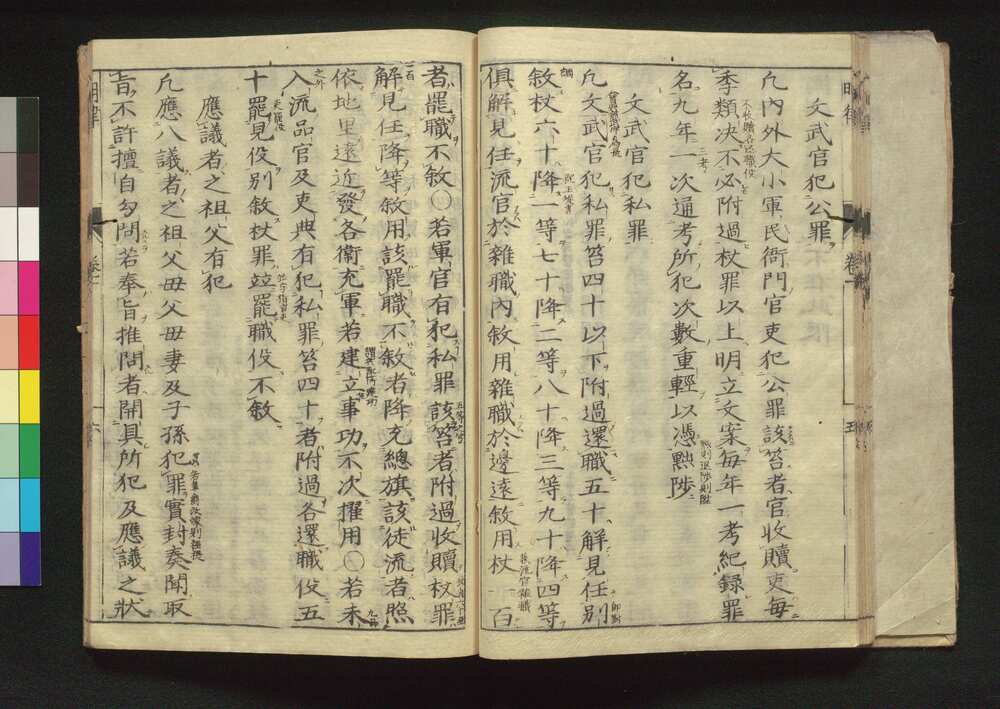 文武官犯公罪
凡內外大小軍民衙門官吏犯公罪該笞者官收贖吏每
季類決不必附過杖罪以上明立文案每年一考紀錄罪
名九年一次通考所犯次數重輕以憑黜陟
文武官犯私罪
凡文武官犯私罪笞四十以下附過還職五十解見任別
敘杖六十降一等七十降二等八十降三等九十降四等
俱解見任流官於雜職內敘用雜職於邊遠敘用杖一百
者罷職不敘〇若軍官有犯私罪該笞者附過收贖杖罪
解見任降等敘用該罷職不敘者降充總旗該徒流者照
依地里遠近發各衛充軍若建立事功不次擢用〇若未
入流品官及吏典有犯私罪笞四十者附過各還職役五
十罷見役別敘杖罪竝罷職役不敘
應議者之祖父有犯
凡應八議者之祖父母父母妻及子孫犯罪實封奏聞取
旨不許擅自勾問若奉旨推問者開具所犯及應議之狀
明律
卷一
五
六